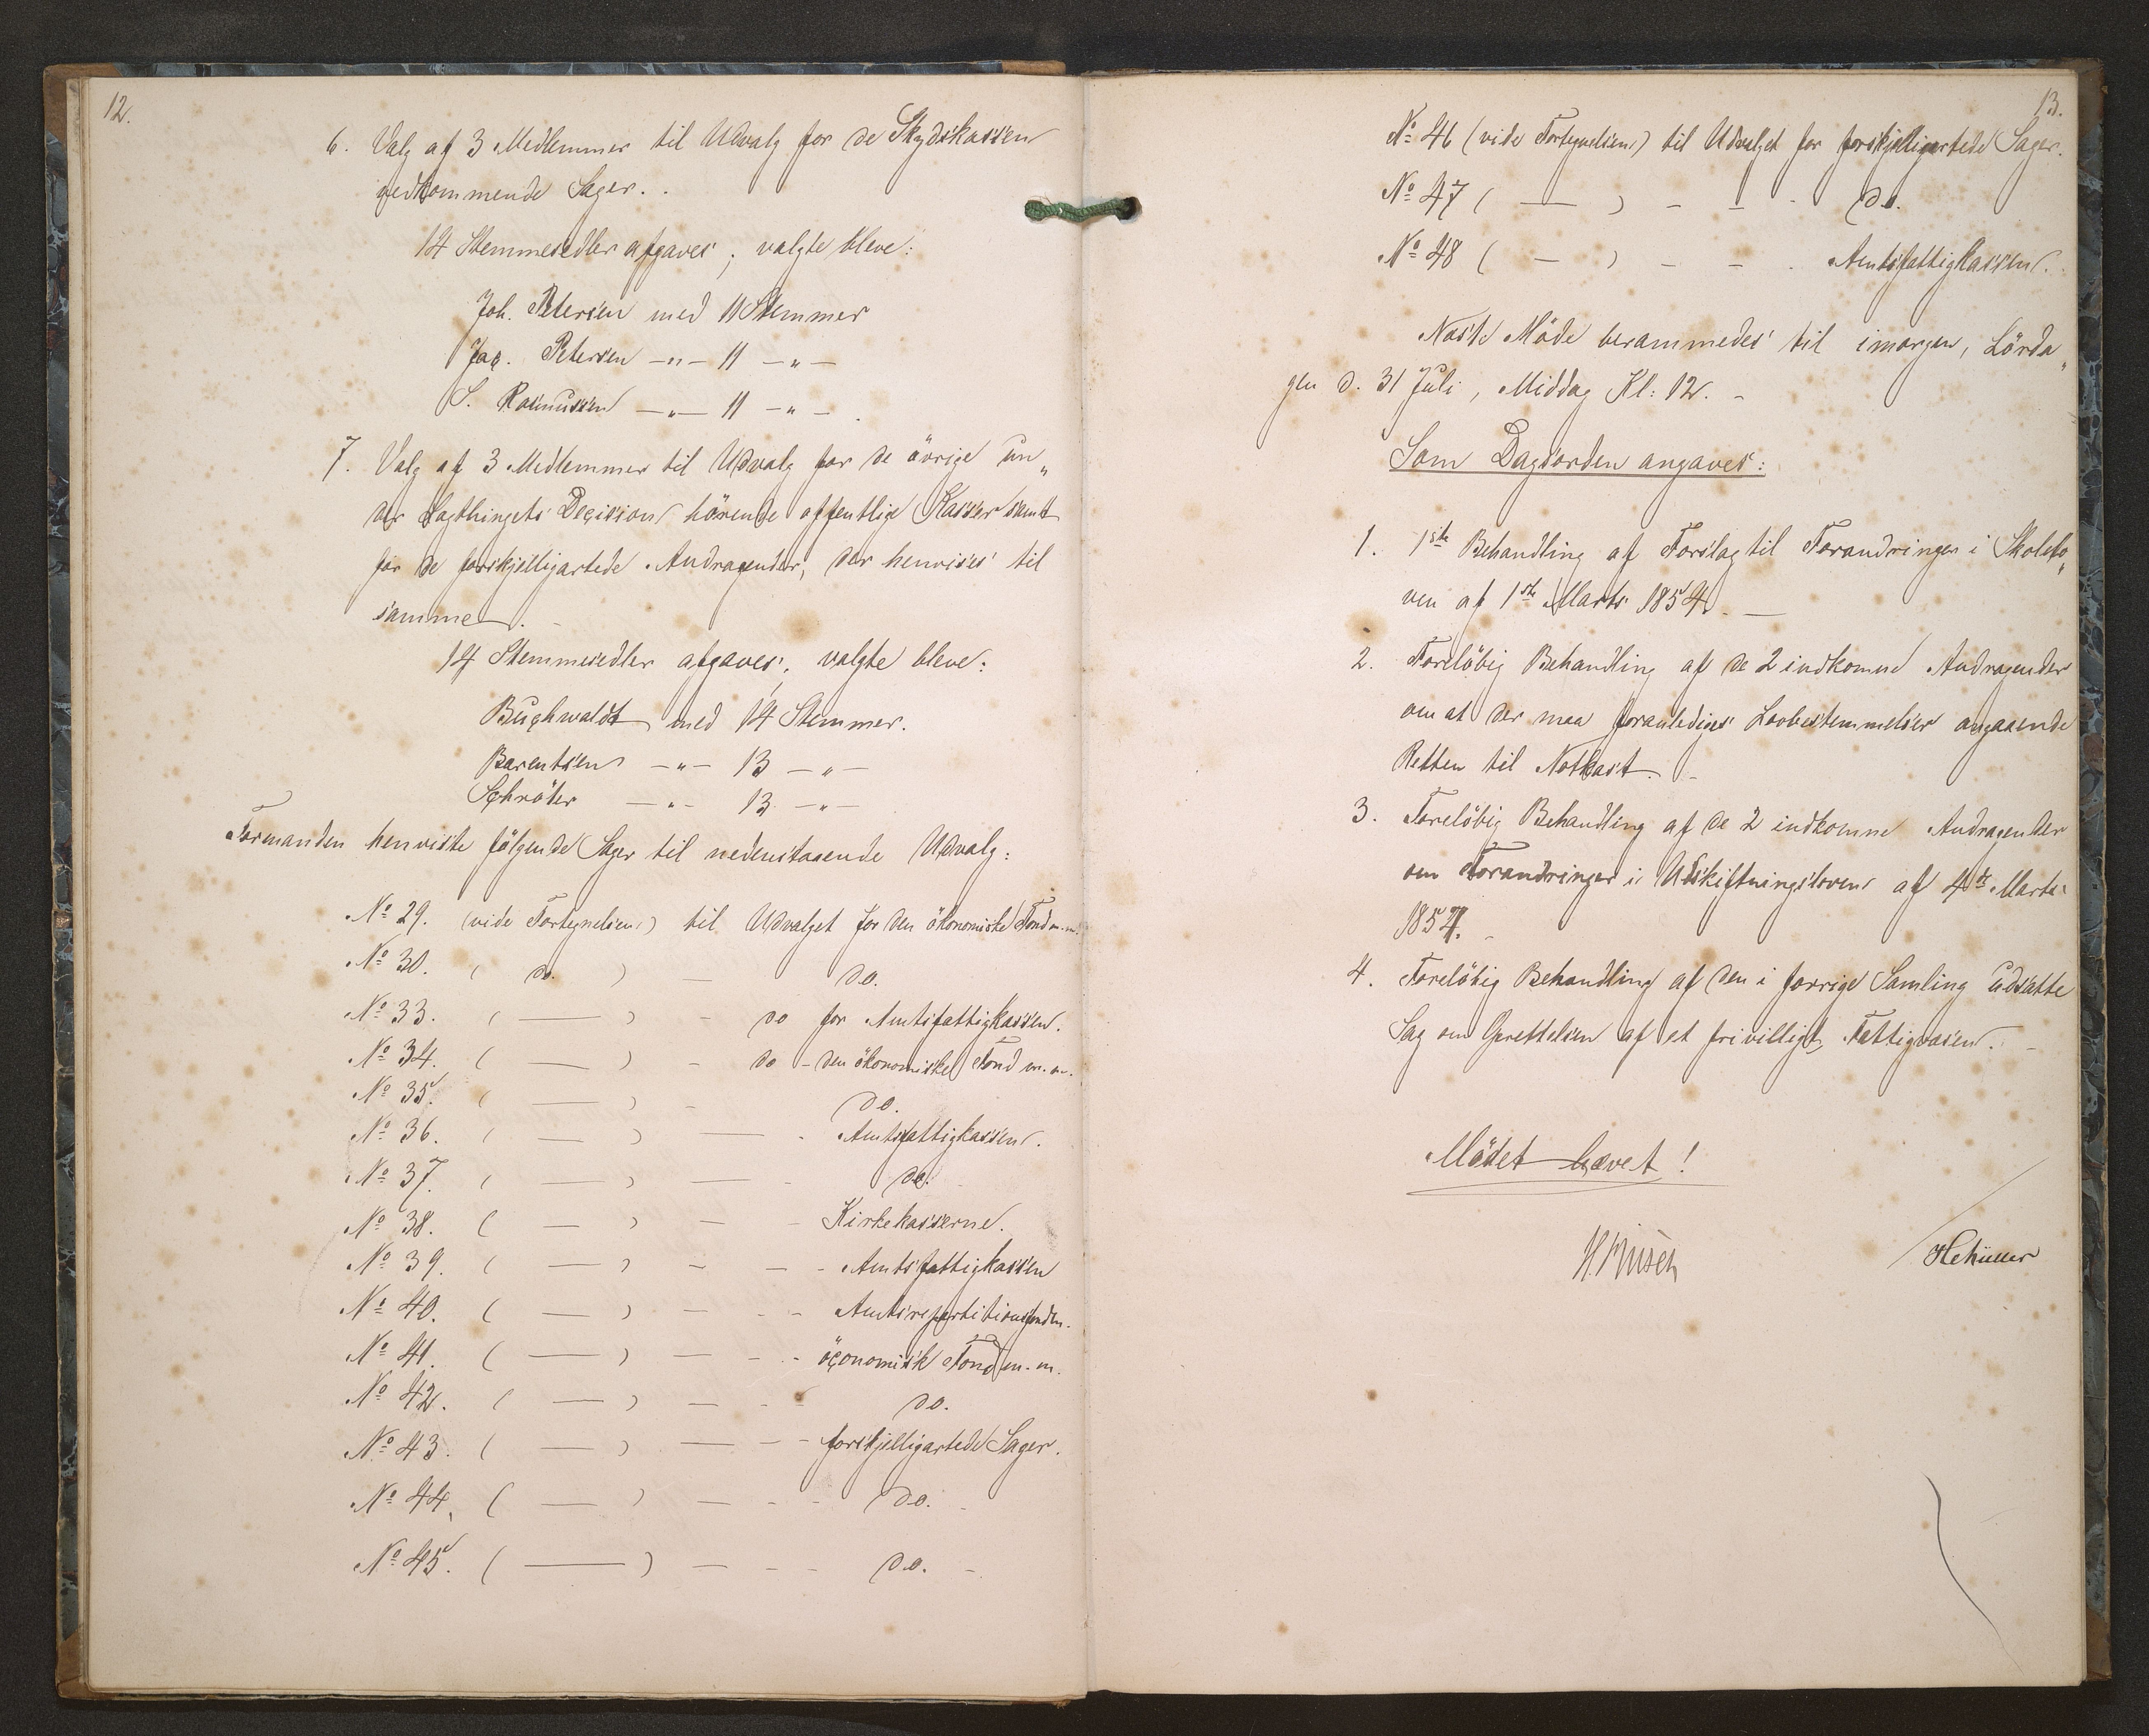 12.
6. Valg af 3 Medlemmer til Udvalg for de Skydskassen
vedkommende Sager.
14 Stemmesedler afgaves; valgte bleve:
Joh. Petersen med 11 Stemmer
Jac. Petersen —〃— 11 —〃—
S. Rasmussen —〃— 11 —〃—
7. Valg af 3 Medlemmer til Udvalg for de övrige un„
der Lagthingets Decision hörende offentlige Kasser samt
for de forskjelligartede Andragender, der henvises til
samme.
14 Stemmesedler afgaves; valgte bleve:
Buchwaldt med 14 Stemmer.
Barentsen —〃— 13 —〃—
Schröter —〃— 13 —〃—
Formanden henviste fölgende Sager til nedenstaaende Udvalg:
No 29. (vide Fortegnelsen) til Udvalget for den ökonomiske Fond m.m.
No 30. ( do. ) — do.
No 33. ( — ) - do for Amtsfattigkassen.
No 34. ( — ) - do - den ökonomiske Fond m.m.
No 35. ( — ) - do.
No 36. ( — ) — - Amtsfattigkassen.
No 37. ( — ) — - do.
No 38. ( — ) — - Kirkekasserne.
No 39. ( — ) - - - Amtsfattigkassen
No 40. ( — ) — - - Amtsrepartitionsfonden.
No 41. ( — ) — - - öconomisk Fond m.m.
No 42. ( — ) — - - do.
No 43. ( — ) — - - forskjelligartede Sager.
No 44. ( — ) — - - do. -
No 45. ( — ) — - - do. -
13.
No 46 (vide Fortegnelsen) til Udvalget for forskjelligartede Sager.
No 47 ( — ) - - - do.
No 48 ( — ) - - - Amtsfattigkassen.
Næste Möde berammedes til imorgen, Lörda„
gen d. 31 Juli, Middag Kl: 12. -
Som Dagsorden angaves:
1. 1ste Behandling af Forslag til Forandringer i Skolelo„
ven af 1ste Marts 1854. —
2. Forelöbig Behandling af de 2 indkomne Andragender
om at der maa foranlediges Lovbestemmelser angaaende
Retten til Notkast. -
3. Forelöbig Behandling af de 2 indkomne Andragender
om Forandringer i Udskiftningsloven af 4de Marts
1857. -
4. Forelöbig Behandling af den i forrige Samling udsatte
Sag om Oprettelsen af et frivilligt Fattigvæsen. -
Mödet hævet!